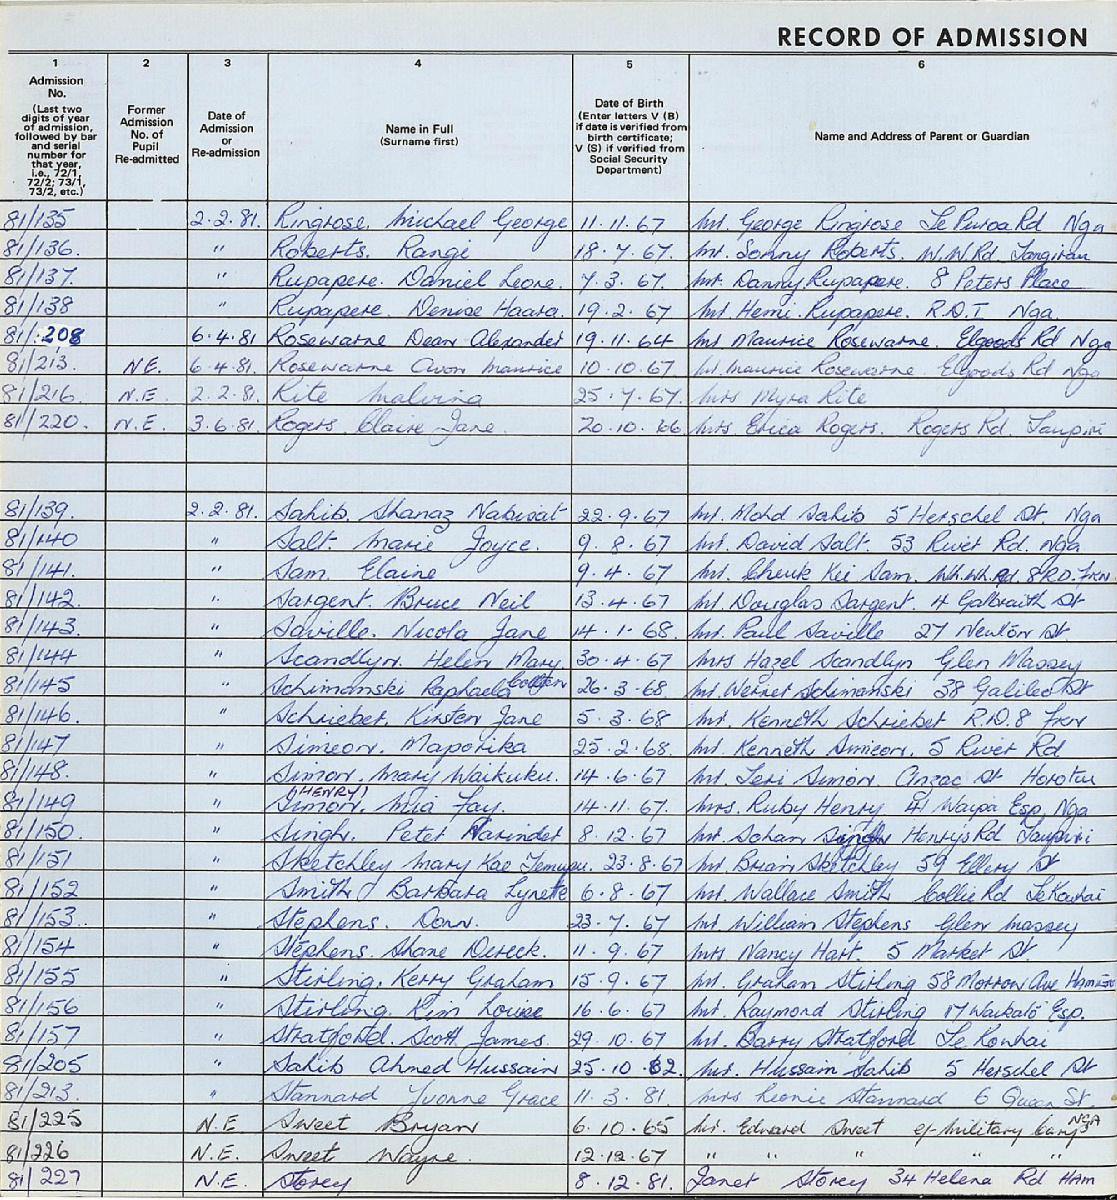 RECORD OF ADMISSION
1 2 3 4 5 6
Admission No. (Last two digits of year of admission, followed by bar and serial number for that year, i.e., 72/1, 72/2; 73/1, 73/2, etc.)
Former Admission No. of Pupil Re-admitted
Date of Admission or Re-admission
Name in Full (Surname first)
Date of Birth (Enter letters V (B) if date is verified from birth certificate; V (S) if verified from Social Security Department)
Name and Address of Parent or Guardian
81/135 2.2.81. Ringrose, Michael George 11.11.67 Mr. George Ringrose Te Puroa Rd Nga
81/136. " Roberts. Rangi 18.7.67. Mr. Sonny Roberts. W.W.Rd.
81/137. " Rupapere. Daniel Leone. 7.3.67. Mr. Danny Rupapere. 8 Peters Place
81/138 " Rupapere. Denise Haara. 19.2.67 Mr. Hemi. Rupapere. R.D.I Nga.
81/.208 6.4.81 Rosewarne Dean Alexander 19.11.64 Mr Maurice Rosewarne. Elgoods Rd Nga
81/213. N.E. 6.4.81. Rosewarne Avon Maurice 10.10.67. Mr. Maurice Rosewarne Elgoods Rd Nga
81/216 N.E. 2.2.81. Rite Malvina 25.7.67. Mrs Myra Rite
81/220. N.E. 3.6.81. Rogers Claire Jane. 20.10.66 Mrs. Erica Rogers. Rogers Rd. Taupiri
81/139. 2.2.81. Sahib. Shanaz Nabisat 22.9.67 Mr. Mohd Sahib 5 Herschel St. Nga
81/140 " Salt. Marie Joyce. 9.8.67 Mr. David Salt. 53 River Rd. Nga
81/141. " Sam. Elaine 9.4.67 Mr. Cheuk Kei Sam. Wh.Wh.Rd. 8 R.D. Frkn
81/142. " Sargent. Bruce Neil 13.4.67 Mr. Douglas Sargent. 4 Galbraith St
81/143. " Saville. Nicola Jane 14.1.68. Mr. Paul Saville 27 Newton St
81/144 " Scandlyn. Helen Mary. 30.4.67 Mrs Hazel Scandlyn Glen Massey
81/145 " Schimanski Raphaela 26.3.68. Mr. Werner Schimanski 38 Galileo St
81/146. " Schrieber. Kirsten Jane 5.3.68 Mr. Kenneth Schrieber R.D.8 Frkn
81/147 " Simeon. Maporika 25.2.68. Mr. Kenneth Simeon. 5 River Rd
81/148. " Simon. Mary Waikuku. 14.6.67 Mr. Teri Simon. Anzac St Horotiu
(HENRY)
81/149 " Simon. Mia Fay. 14.11.67. Mrs. Ruby Henry 41 Waipa Esp. Nga
81/150. " Singh. Peter Narinder 8.12.67 Mr. Sohan Singh Henrys Rd Taupiri
81/151 " Sketchley Mary Kae 23.8.67 Mr. Brian Sketchley 59 Ellery St
81/152 " Smith Barbara Lynette 6.8.67 Mr. Wallace Smith Collie Rd Te Kowhai
81/153.. " Stephens. Donn. 23.7.67 Mr William Stephens Glen Massey
81/154 " Stephens. Shane Dereck. 11.9.67 Mrs Nancy Hart. 5 Market St.
81/155 " Stirling. Kerry Graham 15.9.67 Mr. Graham Stirling 58 Morrow Ave
81/156 " Stirling. Kim Louise 16.6.67 Mr. Raymond Stirling 17 Waikato Esp.
81/157 " Stratford. Scott James. 29.10.67 Mr. Barry Stratford Te Kowhai
81/205 " Sahib Ahmed Hussain 25.10.62. Mr. Hussain Sahib 5 Herschel St
81/213. " Stannard Yvonne Grace 11.3.81. Mrs Leonie Stannard 6 Queen St
81/225 N.E. Sweet Bryan 6.10.65 Mr. Edward Sweet ex military Camp NGA
81/226 N.E. Sweet Wayne. 12.12.67 " " " " "
81/227 N.E. Storey 8.12.81. Janet Storey 34 Helena Rd Ham